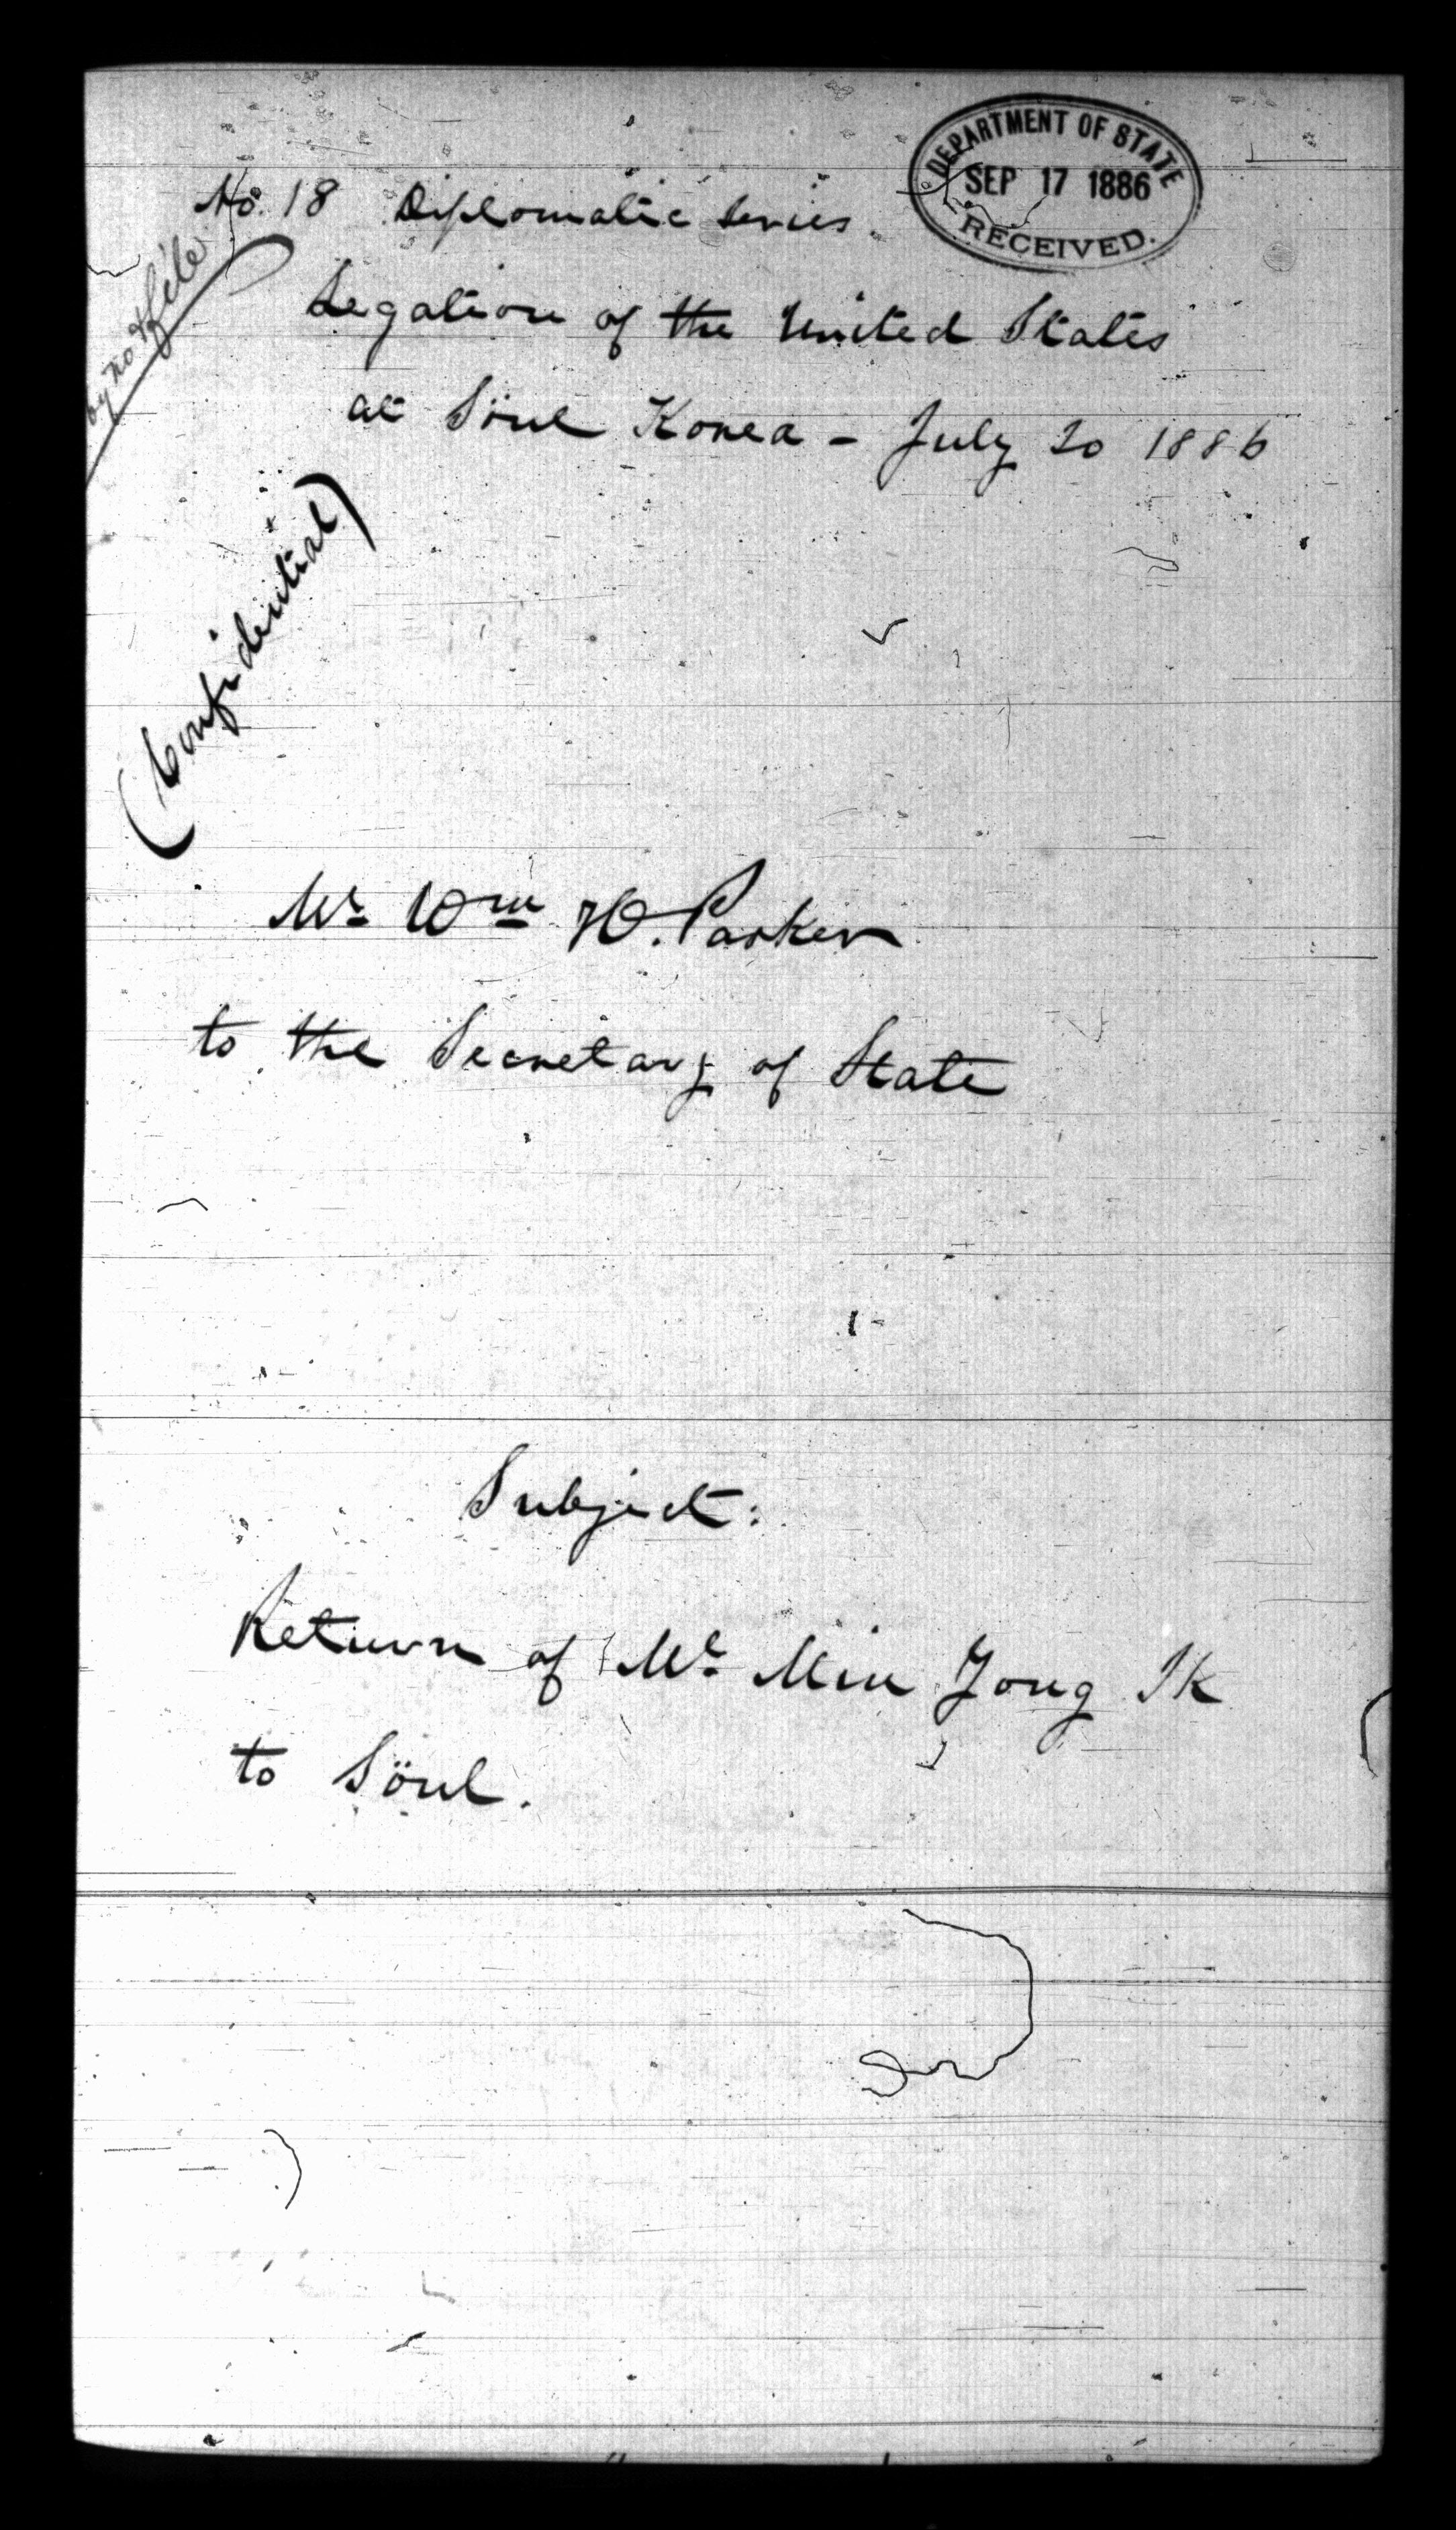 DEPARTMENT OF STATE
SEP 17 1886
RECEIVED.
No. 18 Diplomatic Series.
Legation of the United States
at Söul Korea - July 20 1886
(Confidential)
Mr Wm H. Parker
to the Secretary of State
Subject:
Return of Mr Min Yong Ik
to Söul.